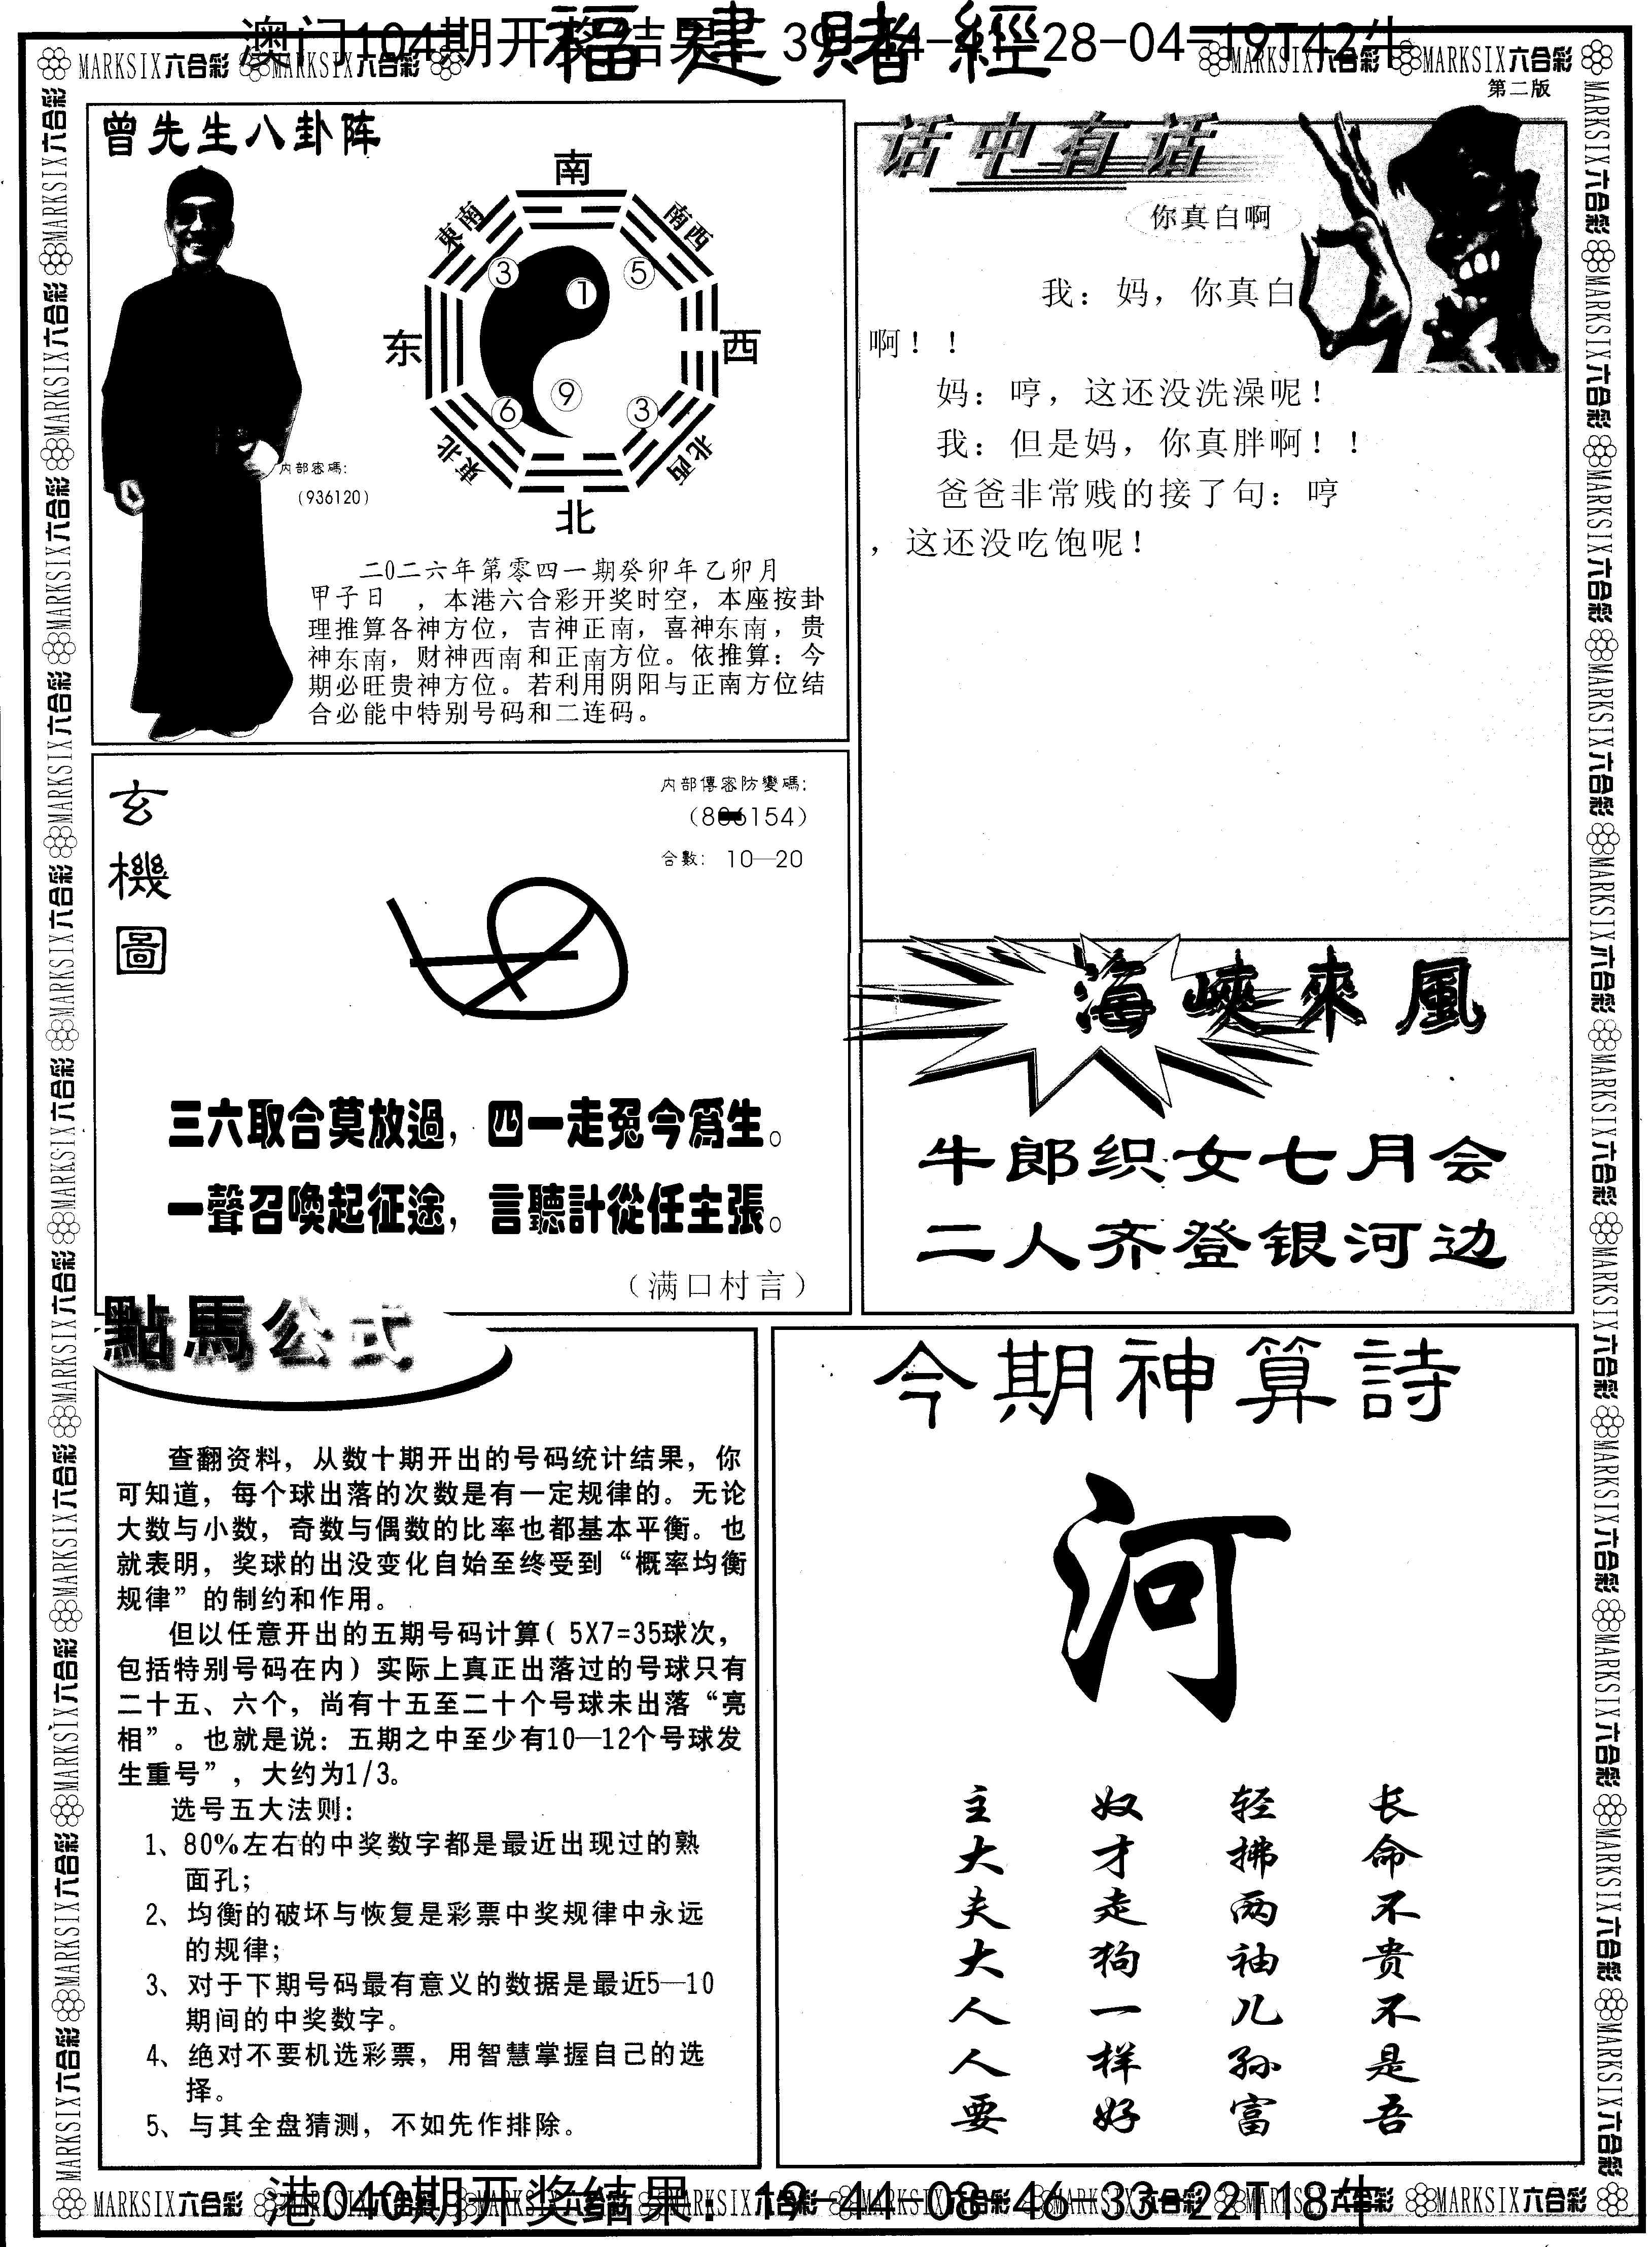 福建賭經
澳门104期开奖结果: 39-14-41-28-04-19T42牛
MARKSIX六合彩 MARKSIX六合彩 MARKSIX六合彩 MARKSIX六合彩
第二版
曾先生八卦阵
南
東南
南西
3
5
1
东
西
9
6
3
東北
北西
北
内部密碼:
(936120)
二0二六年第零四一期癸卯年乙卯月
甲子日 ,本港六合彩开奖时空,本座按卦
理推算各神方位,吉神正南,喜神东南,贵
神东南,财神西南和正南方位。依推算:今
期必旺贵神方位。若利用阴阳与正南方位结
合必能中特别号码和二连码。
话中有话
你真白啊
我:妈,你真白
啊!!
妈:哼,这还没洗澡呢!
我:但是妈,你真胖啊!!
爸爸非常贱的接了句:哼
,这还没吃饱呢!
玄機圖
内部傳密防變碼:
合數: 10—20
三六取合莫放過,四一走兔今爲生。
一聲召喚起征途,言聽計從任主張。
(满口村言)
海峽來風
牛郎织女七月会
二人齐登银河边
點馬公式
查翻资料,从数十期开出的号码统计结果,你
可知道,每个球出落的次数是有一定规律的。无论
大数与小数,奇数与偶数的比率也都基本平衡。也
就表明,奖球的出没变化自始至终受到“概率均衡
规律”的制约和作用。
但以任意开出的五期号码计算( 5X7=35球次,
包括特别号码在内)实际上真正出落过的号球只有
二十五、六个,尚有十五至二十个号球未出落“亮
相”。也就是说:五期之中至少有10—12个号球发
生重号”,大约为1/3。
选号五大法则:
1、80%左右的中奖数字都是最近出现过的熟
面孔;
2、均衡的破坏与恢复是彩票中奖规律中永远
的规律;
3、对于下期号码最有意义的数据是最近5—10
期间的中奖数字。
4、绝对不要机选彩票,用智慧掌握自己的选
择。
5、与其全盘猜测,不如先作排除。
今期神算詩
河
长命不贵不是吾
轻拂两袖儿孙富
奴才走狗一样好
主大夫大人人要
港040期开奖结果: 19-44-08-46-33-22T18牛
MARKSIX六合彩 MARKSIX六合彩 MARKSIX六合彩 MARKSIX六合彩 MARKSIX六合彩 MARKSIX六合彩 MARKSIX六合彩 MARKSIX六合彩